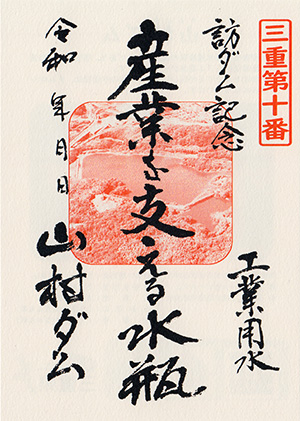 三重第十番
訪ダム記念
工業用水
産業を支える水瓶
山村ダム
令和 年 月 日